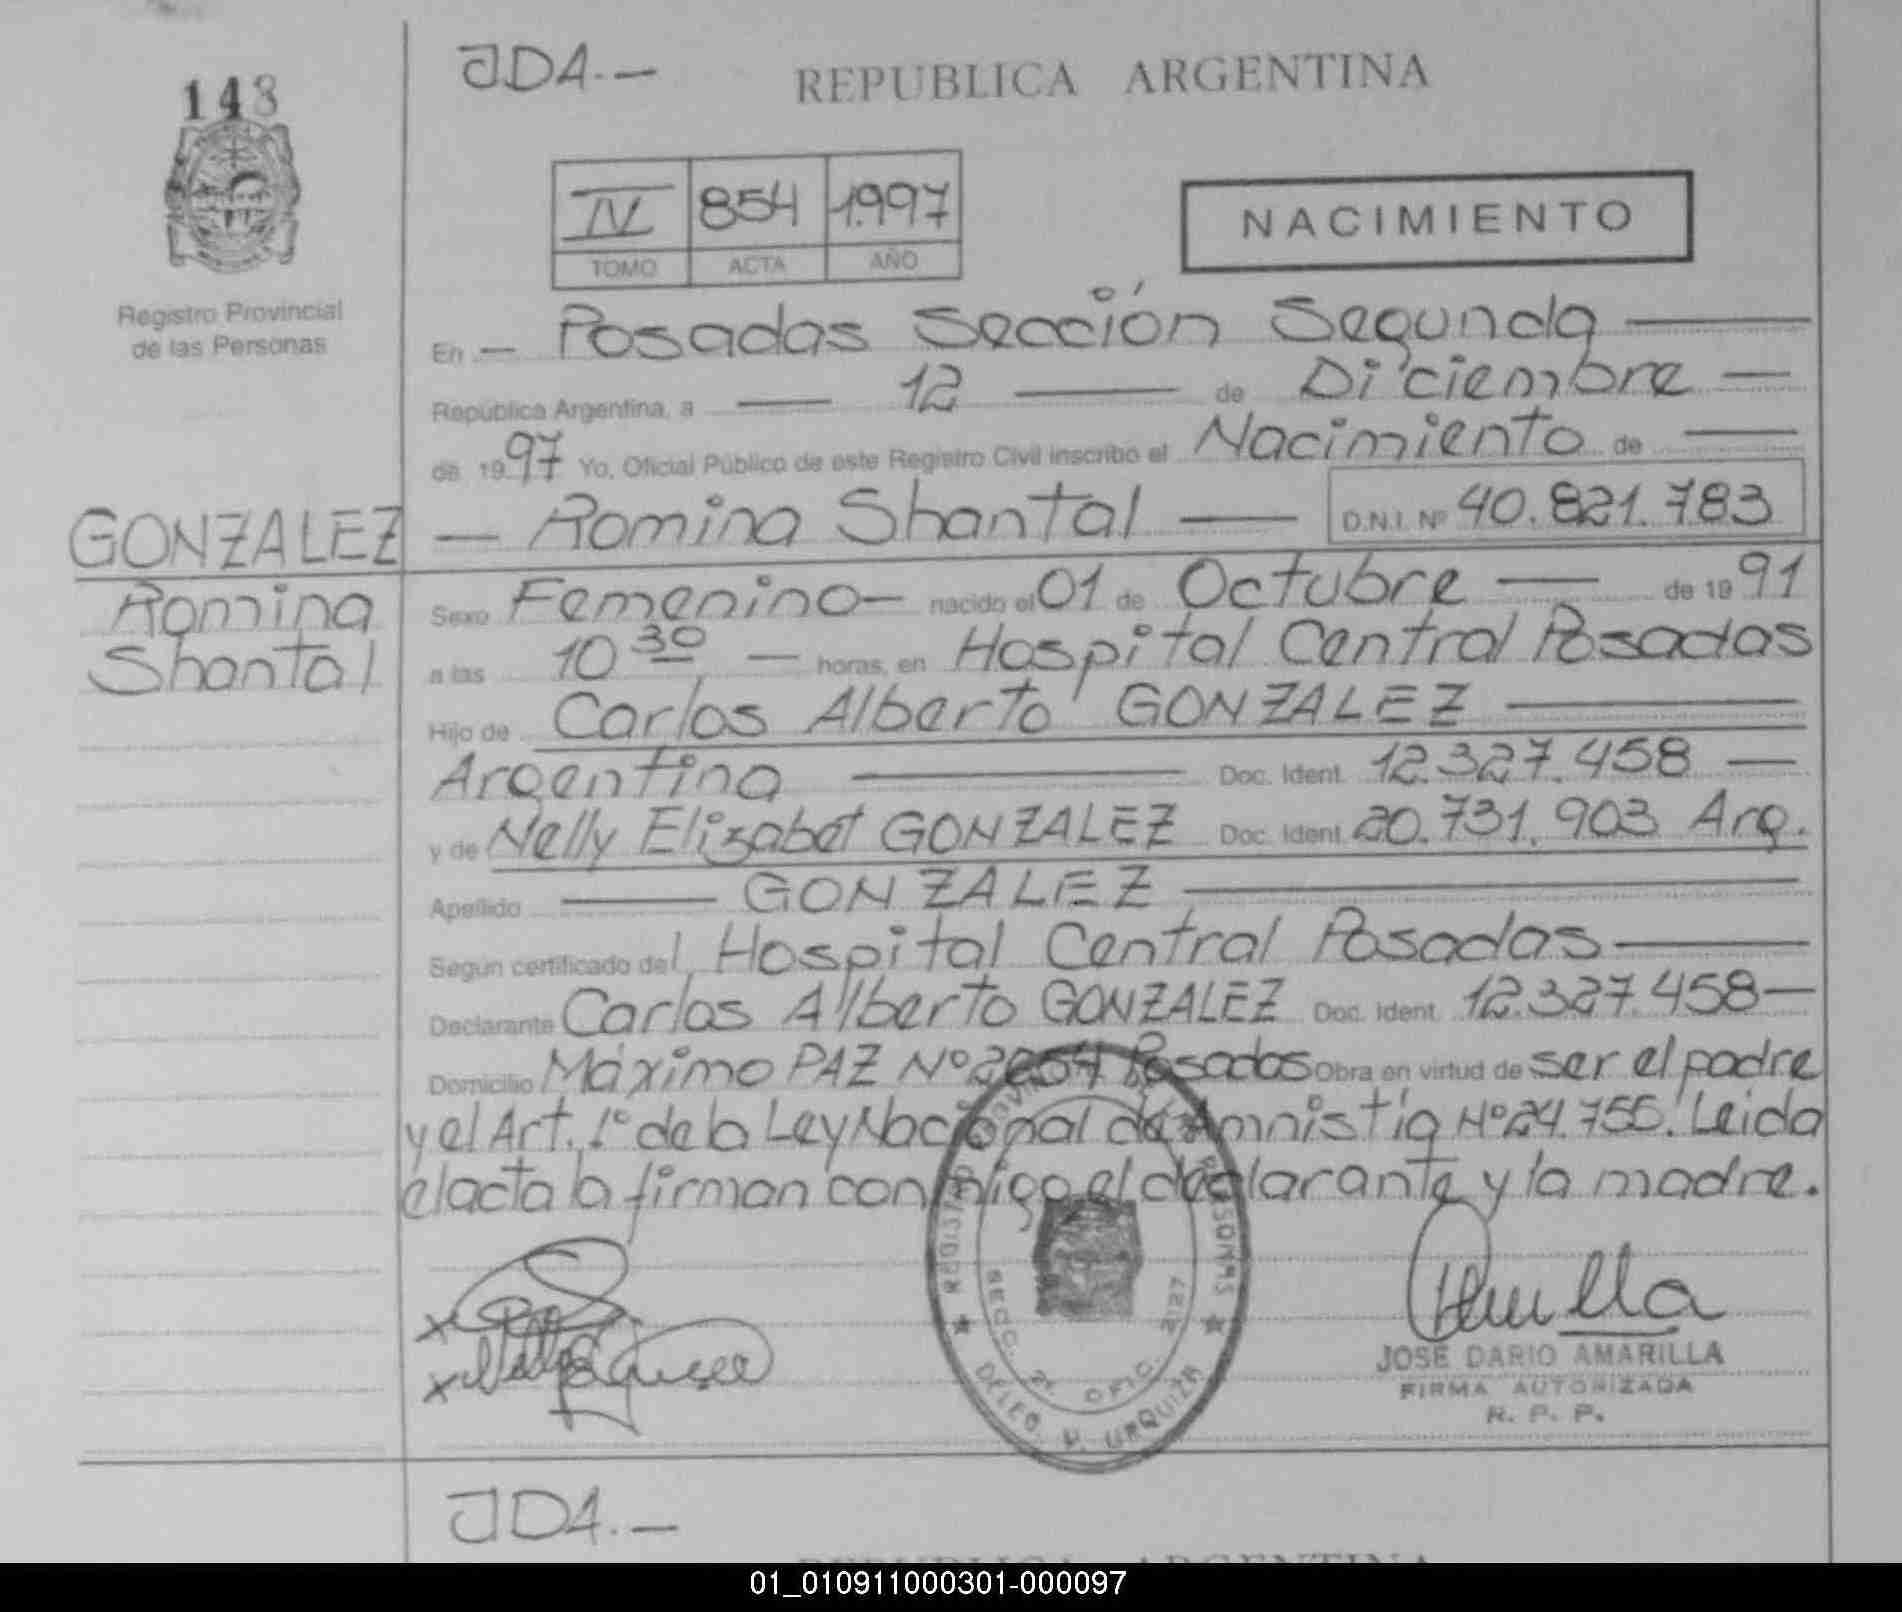 JDA.—
REPUBLICA ARGENTINA
143
IV 854 1.997
TOMO ACTA AÑO
NACIMIENTO
Registro Provincial
de las Personas
En — Posadas Sección Segunda
República Argentina, a — 12 — de Diciembre —
de 1997 Yo, Oficial Público de este Registro Civil inscribo el Nacimiento de —
GONZALEZ
Romina
Shantal
— Romina Shantal — D.N.I. Nº 40.821.783
Sexo Femenino — nacido el 01 de Octubre — de 1991
a las 10 30 — horas, en Hospital Central Posadas
Hijo de Carlos Alberto GONZALEZ —
Argentina — Doc. Ident. 12.327.458 —
y de Nelly Elizabet GONZALEZ Doc. Ident. 20.731.903 Arg.
Apellido — GONZALEZ —
Según certificado del Hospital Central Posadas —
Declarante Carlos Alberto GONZALEZ Doc. Ident. 12.327.458 —
Domicilio Máximo PAZ Nº 2054 Posadas Obra en virtud de ser el padre
y el Art. 1º de la Ley Nacional de Amnistía Nº 24.755. Leida
el acta la firman conmigo el declarante y la madre.
SECC. 2ª OFIC. 2127
DELEG. U. URQUIZA
JOSE DARIO AMARILLA
FIRMA AUTORIZADA
R. P. P.
JDA.—
REPUBLICA ARGENTINA
01_010911000301-000097